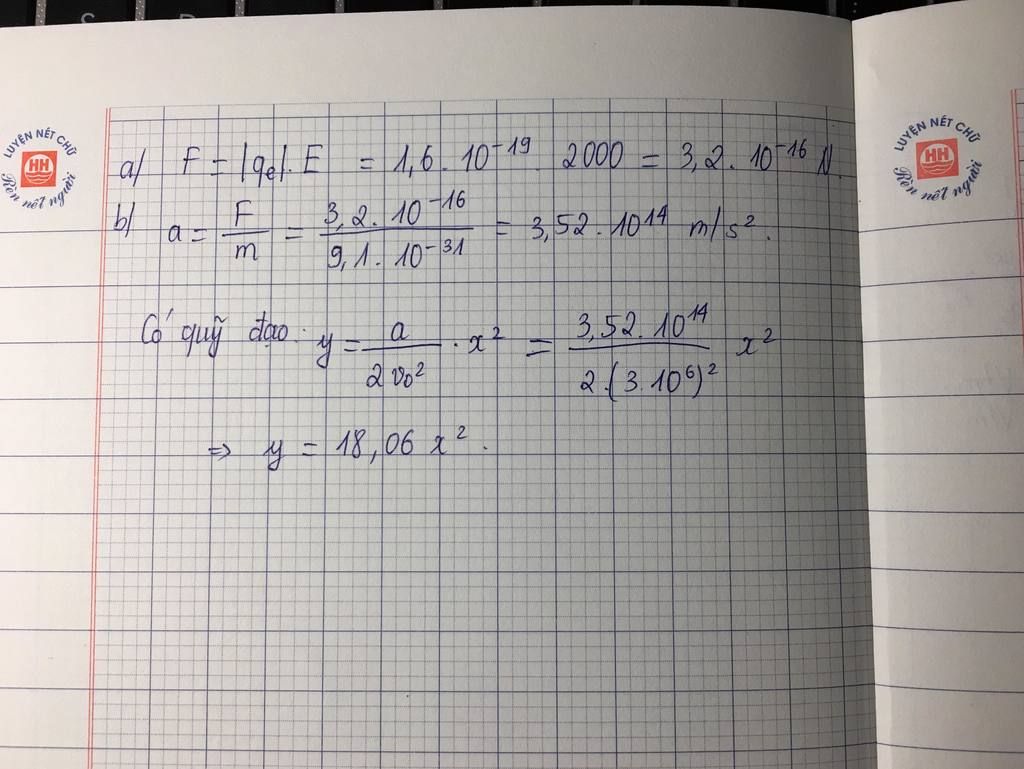 LUYỆN NÉT CHỮ
HH
Rèn nết người
LUYỆN NÉT CHỮ
HH
Rèn nết người
a) F = |qe|.E = 1,6 . 10⁻¹⁹ . 2000 = 3,2 . 10⁻¹⁶ N.
b) a = F/m = 3,2 . 10⁻¹⁶ / 9,1 . 10⁻³¹ = 3,52 . 10¹⁴ m/s².
Có quỹ đạo: y = a / 2v₀² . x² = 3,52 . 10¹⁴ / 2.(3.10⁶)² x²
⇒ y = 18,06 x².